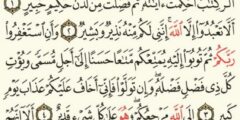 الٓر كِتَٰبٌ أُحْكِمَتْ ءَايَٰتُهُۥ ثُمَّ فُصِّلَتْ مِن لَّدُنْ حَكِيمٍ خَبِيرٍ ١
أَلَّا تَعْبُدُوٓا۟ إِلَّا ٱللَّهَ إِنَّنِى لَكُم مِّنْهُ نَذِيرٌ وَبَشِيرٌ ٢ وَأَنِ ٱسْتَغْفِرُوا۟
رَبَّكُمْ ثُمَّ تُوبُوٓا۟ إِلَيْهِ يُمَتِّعْكُم مَّتَٰعًا حَسَنًا إِلَىٰٓ أَجَلٍ مُّسَمًّى وَيُؤْتِ
كُلَّ ذِى فَضْلٍ فَضْلَهُۥ وَإِن تَوَلَّوْا۟ فَإِنِّىٓ أَخَافُ عَلَيْكُمْ عَذَابَ يَوْمٍ
كَبِيرٍ ٣ إِلَى ٱللَّهِ مَرْجِعُكُمْ وَهُوَ عَلَىٰ كُلِّ شَىْءٍ قَدِيرٌ ٤